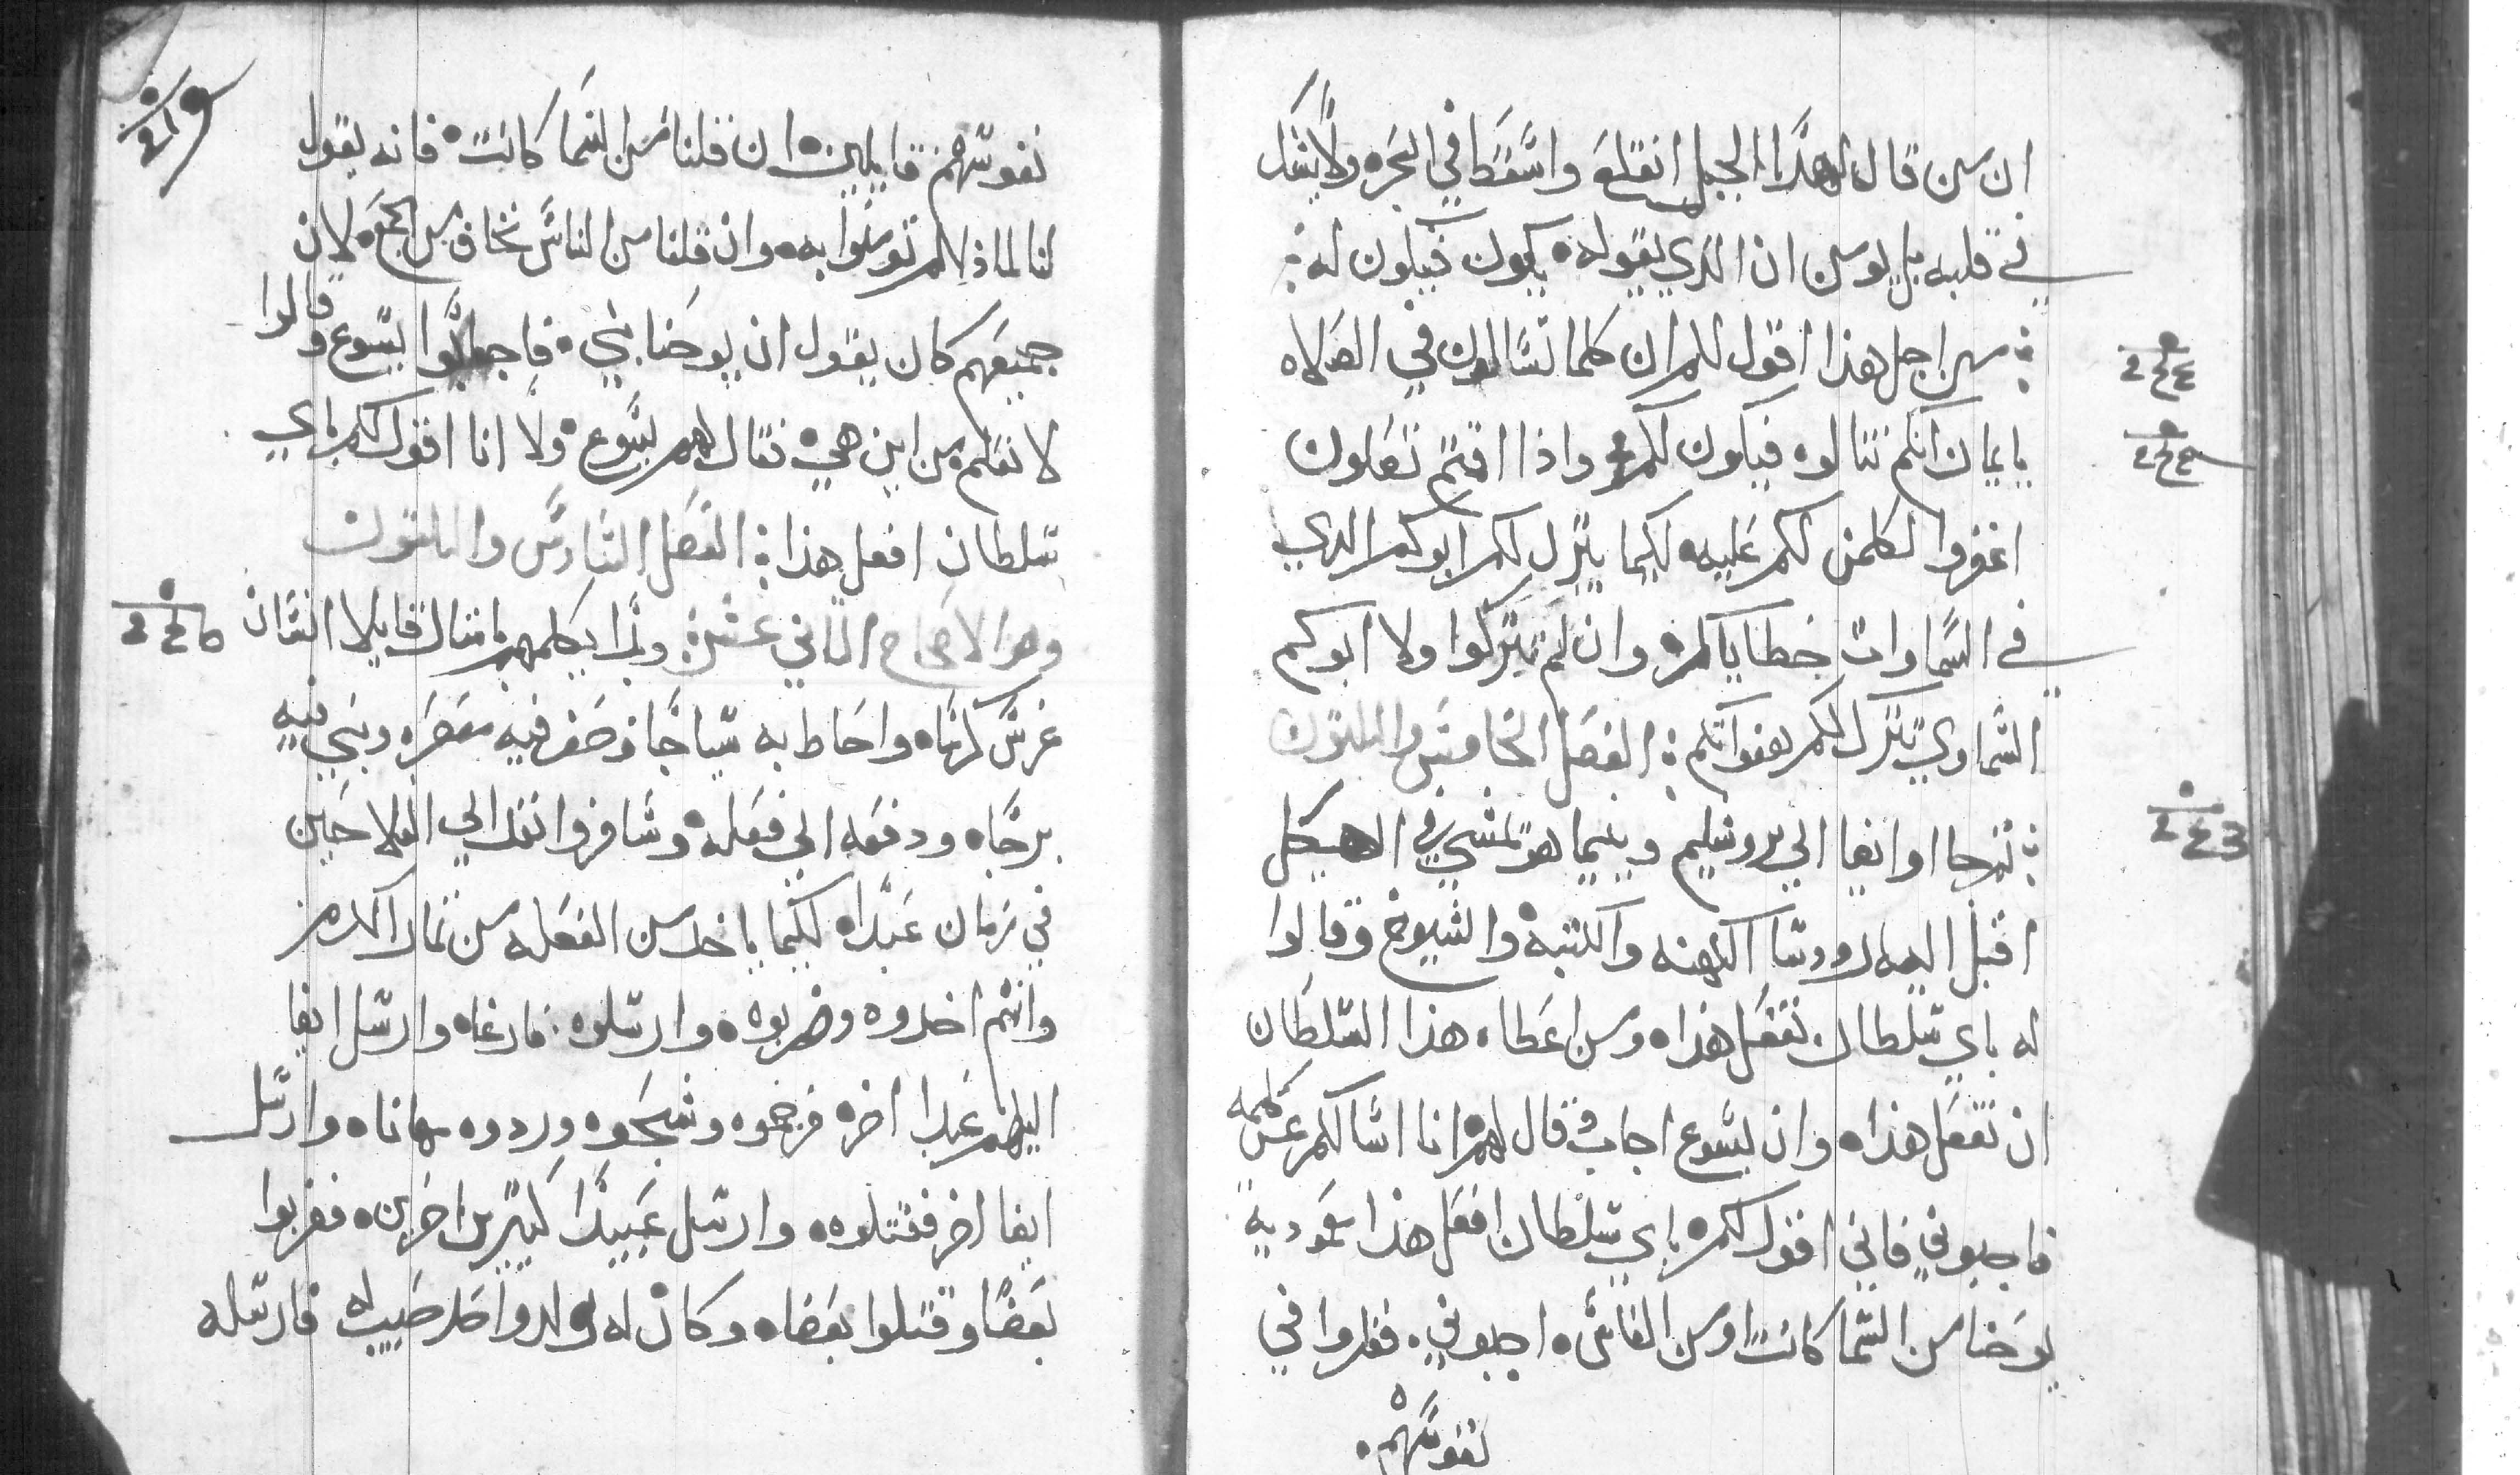 ان من قال لهذا الجبل انقلع واسقط في البحر ولا يشك
في قلبه بل يومن ان الذي يقوله يكون فيكون له
من اجل هذا اقول لكم ان كلما تسالون في الصلاه
بايمان انكم تنالوه فيكون لكم واذا اقمتم تصلون
اغفروا لكلمن لكم عليه لكيما يترك لكم ابوكم الدي
في السماوات خطاياكم وان لم تتركوا ولا ابوكم
السماوي يترك لكم هفواتكم الفصل الخامس والتلتون
ثم جا ايضا الي يروشليم وبينما هو يمشي في الهيكل
اقبل اليه روسا الكهنه والكتبه والشيوخ وقالوا
له باي سلطان تفعل هذا ومن اعطاه هذا السلطان
ان تفعل هذا وان يسوع اجاب وقال لهم انا اسالكم عن كلمه
فاجيبوني فاني اقول لكم باي سلطان افعل هذا معموديه
يوحنا من السما كانت او من الناس اجيبوني ففكروا في
نفوسهم
نفوسهم قايلين ان قلنا من السما كانت فانه يقول
لنا لماذا لم تومنوا به وان قلنا من الناس نخاف من الجمع لان
جميعهم كان يقول ان يوحنا نبي فاجابوا يسوع وقالوا
لا نعلم من اين هي فقال لهم يسوع ولا انا اقول لكم باي
سلطان افعل هذا الفصل السادس والتلتون
وهو الاصحاح التاني عشر وبدا يكلمهم بامتال قايلا انسان
غرس كرما واحاط به سياجا وحفر فيه معصره وبني فيه
برجا ودفعه الي فعله وسافر وانفد الي الفلاحين
في زمان عبدا لكيما ياخد من الفعله من تمار الكرم
وانتم اخدوه وضربوه وارسلوه فارغا وارسل ايضا
اليهم عبدا اخر فرجموه وشجوه وردوه مهانا وارسل
ايضا اخر فقتلوه وارسل عبيدا كتيرين اخرين فضربوا
بعضا وقتلوا بعضا وكان له ولد واحد حبيبه فارسله